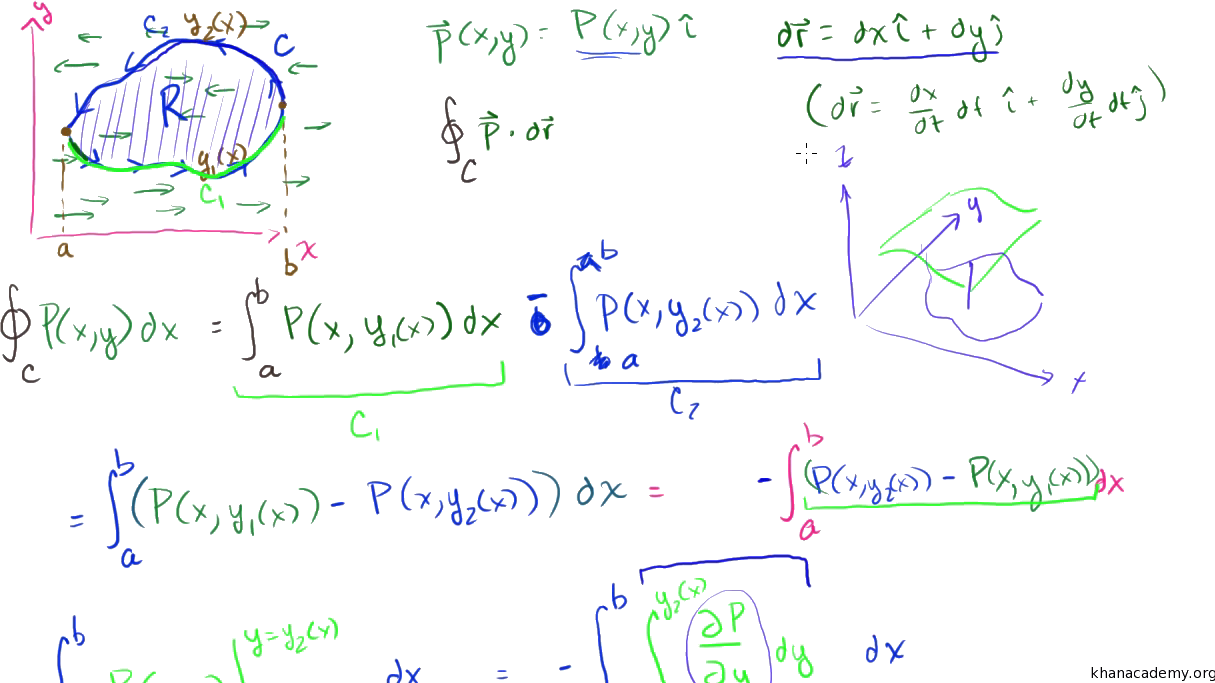 y
C₂ y₂(x) C
R
y₁(x)
C₁
a b x
P⃗(x,y) = P(x,y) î
dr⃗ = dx î + dy ĵ
(dr⃗ = dx/dt dt î + dy/dt dt ĵ)
∮_C P⃗ · dr⃗
z
y
x
∮_C P(x,y) dx = ∫_a^b P(x, y₁(x)) dx - ∫_a^b P(x, y₂(x)) dx
C₁ C₂
= ∫_a^b (P(x, y₁(x)) - P(x, y₂(x))) dx = - ∫_a^b (P(x, y₂(x)) - P(x, y₁(x))) dx
∫^b | y=y₂(x) dx = - ∫^b ∫^y₂(x) ∂P/∂y dy dx
khanacademy.org